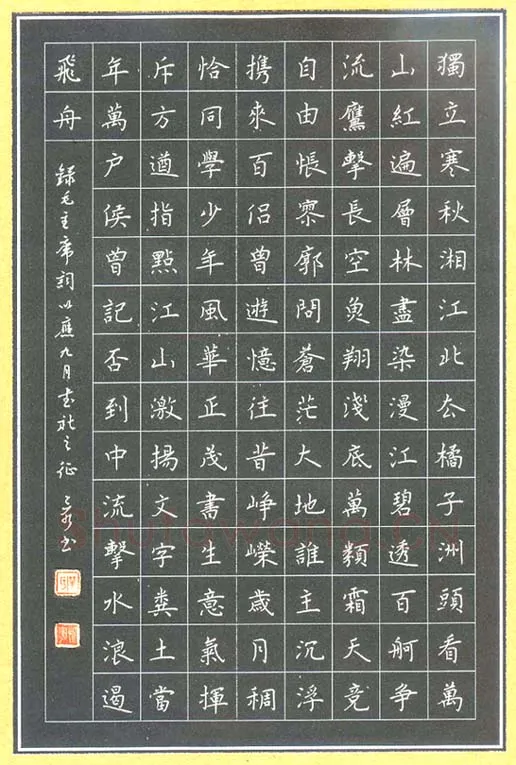 獨立寒秋湘江北去橘子洲頭看萬
山紅遍層林盡染漫江碧透百舸争
流鷹擊長空魚翔淺底萬類霜天竞
自由悵寥廓問蒼茫大地誰主沉浮
携來百侣曾遊憶往昔崢嶸歲月稠
恰同學少年風華正茂書生意氣揮
斥方遒指點江山激揚文字糞土當
年萬户侯曾記否到中流擊水浪遏
飛舟
録毛主席詞以應九月书社之征